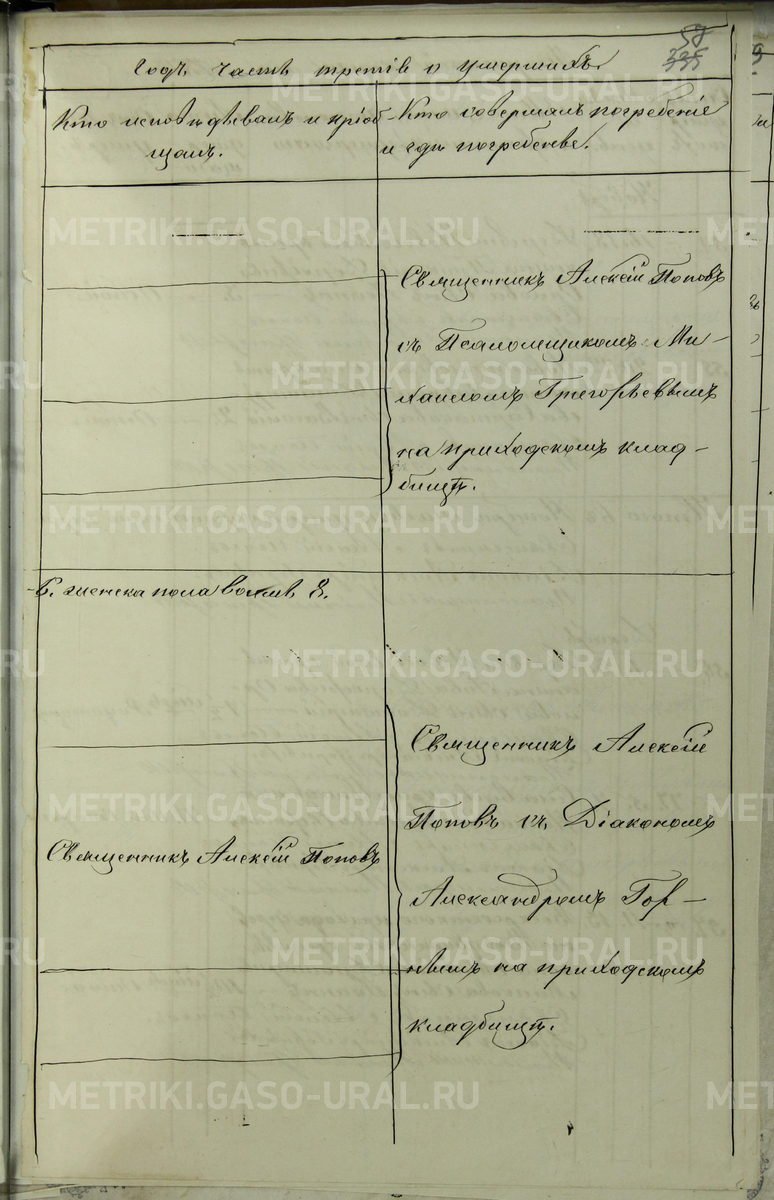 58
335
годъ часть третія о умершихъ.
Кто исповѣдывалъ и пріоб-
щалъ.
Кто совершалъ погребеніе
и гдѣ погребены.
Священникъ Алексій Поповъ
съ Псаломщикомъ Ми-
хаиломъ Григорьевымъ
на приходскомъ клад-
бищѣ.
6. женска пола восемь 8.
Священникъ Алексій Поповъ
Священникъ Алексій
Поповъ съ Діакономъ
Александромъ Гор-
нымъ на приходскомъ
кладбищѣ.
METRIKI.GASO-URAL.RU